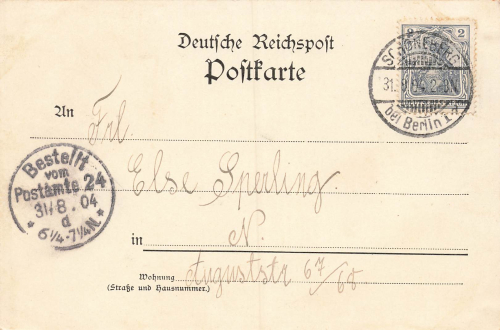 Deutsche Reichspost
Postkarte
2 2
SCHÖNEBERG
31.8.04. 2-3N.
bei Berlin 1
An Frl.
Else Sperling
in N.
Wohnung Auguststr 67/68
(Straße und Hausnummer.)
Bestellt
vom
Postamte 24
31/8.04
d
6¼-7¼N.